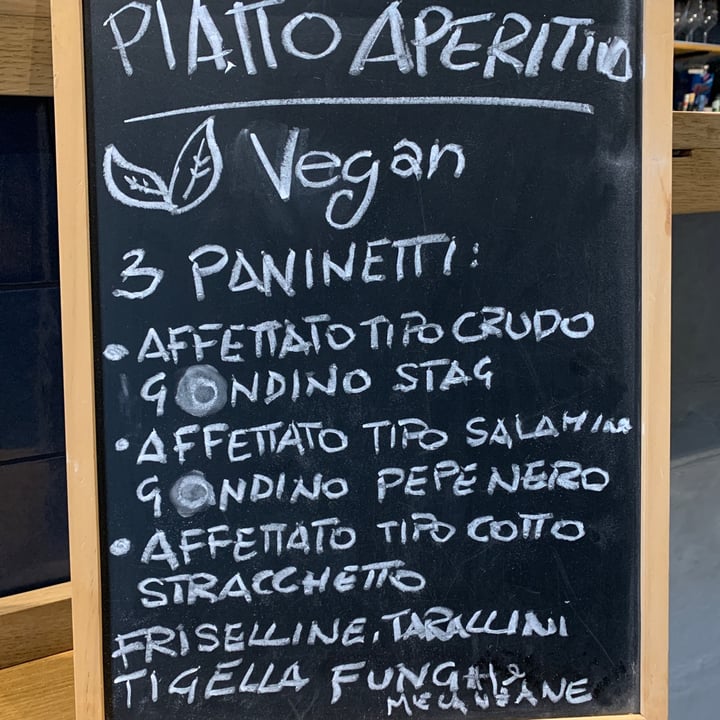 PIATTO APERITIVO
Vegan
3 PANINETTI:
• AFFETTATO TIPO CRUDO
GONDINO STAG
• AFFETTATO TIPO SALAMINO
GONDINO PEPE NERO
• AFFETTATO TIPO COTTO
STRACCHETTO
FRISELLINE, TARALLINI
TIGELLA FUNGHI
MELANZANE